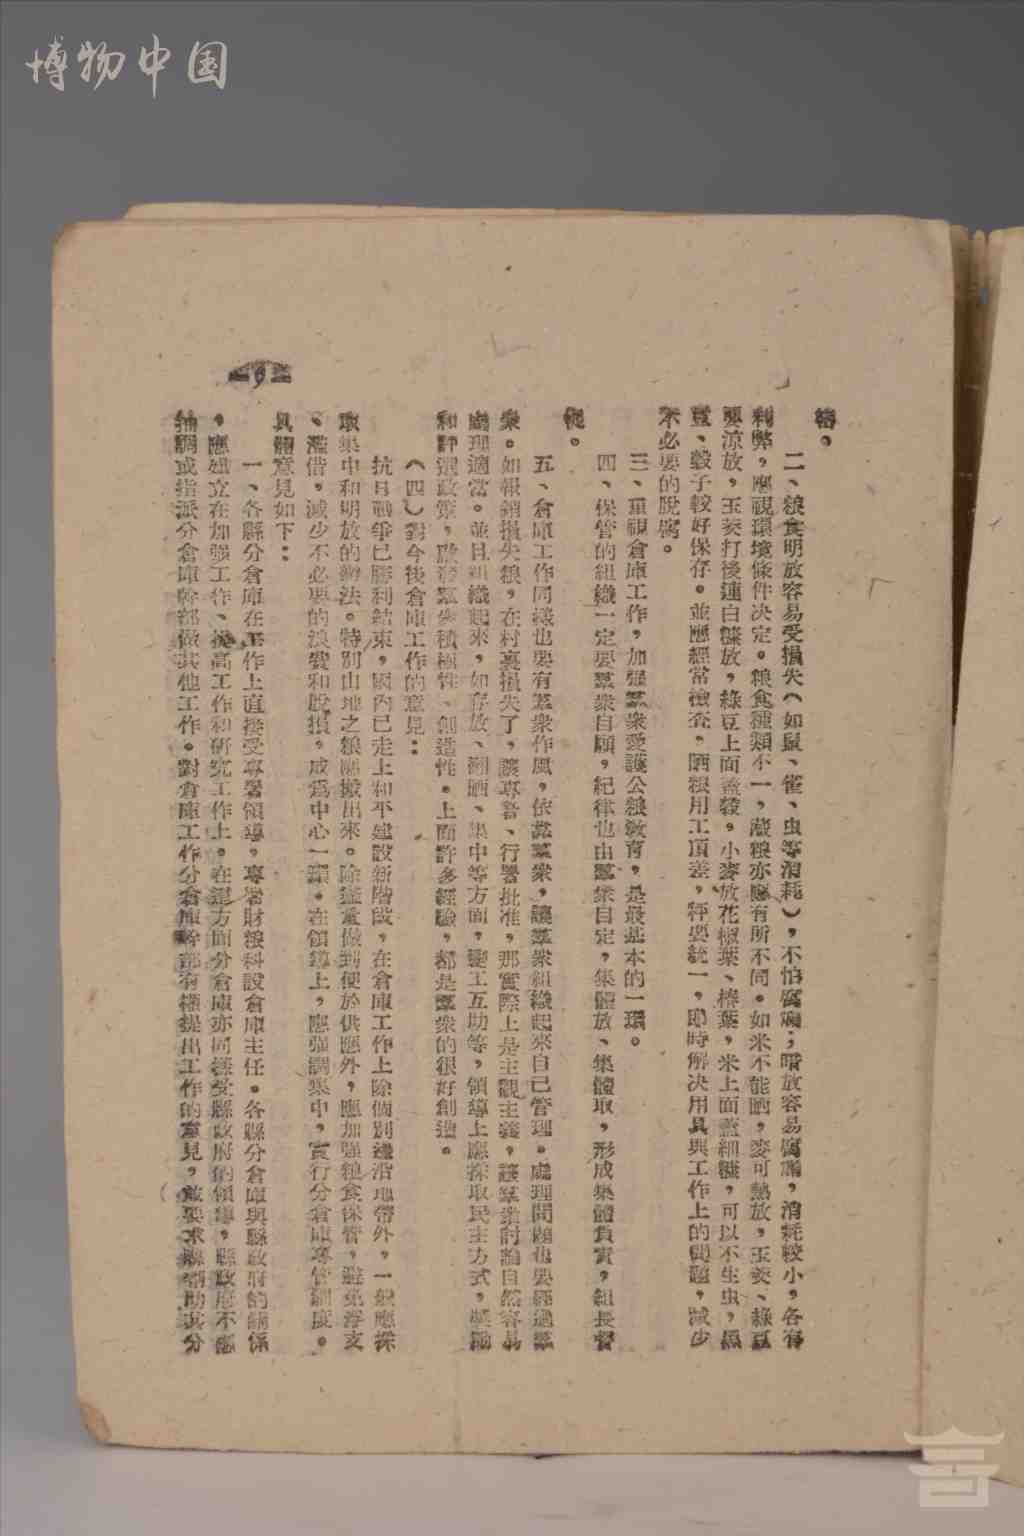 博物中国
9
二、粮食明放容易受損失（如鼠、雀、虫等消耗），不怕腐爛；暗放容易腐爛，消耗較小，各有
利弊，應視環境條件决定。粮食種類不一，藏粮亦應有所不同。如米不能晒，麥可熱放，玉茭、綠豆
要凉放，玉茭打後連白糠放，綠豆上面蓋穀。小麥放花椒葉、椿葉，米上面蓋細糠，可以不生虫，黑
豆、穀子較好保存。並應經常檢查，晒粮用工頂差，秤要統一，即時解决用具與工作上的問題，减少
不必要的脫腐。
三、重視倉庫工作，加强羣衆愛護公粮敎育，是最基本的一環。
四、保管的組織一定要羣衆自願，紀律也由羣衆自定，集體放、集體取，形成集體負責，組長督
促。
五、倉庫工作同樣也要有羣衆作風，依靠羣衆，讓羣衆組織起來自己管理。處理問題也要經過羣
衆。如報銷損失粮，在村裏損失了，讓專署、行署批准，那實際上是主觀主義，讓羣衆討論自然容易
處理適當。並且組織起來，如存放、翻晒、集中等方面，變工互助等，領導上應採取民主方式，獎勵
和評選政策，啟發羣衆積極性、創造性。上面許多經驗，都是羣衆的很好創造。
（四）對今後倉庫工作的意見：
抗日戰爭已勝利結束，國內已走上和平建設新階段，在倉庫工作上除個別邊沿地帶外，一般應採
取集中和明放的辦法。特別山地之粮應搬出來。除儘量做到便於供應外，應加强粮食保管，避免浮支
、濫借，减少不必要的浪費和脫損，成爲中心一環。在領導上，應强調集中，實行分倉庫專管制度。
具體意見如下：
一、各縣分倉庫在工作上直接受專署領導，專署財粮科設倉庫主任。各縣分倉庫與縣政府的關係
，應建立在加强工作、提高工作和研究工作上。在這方面分倉庫亦同樣受縣政府的領導，縣政府不應
抽調或指派分倉庫幹部做其他工作。對倉庫工作分倉庫幹部有權提出工作的意見，並要求縣帮助其分